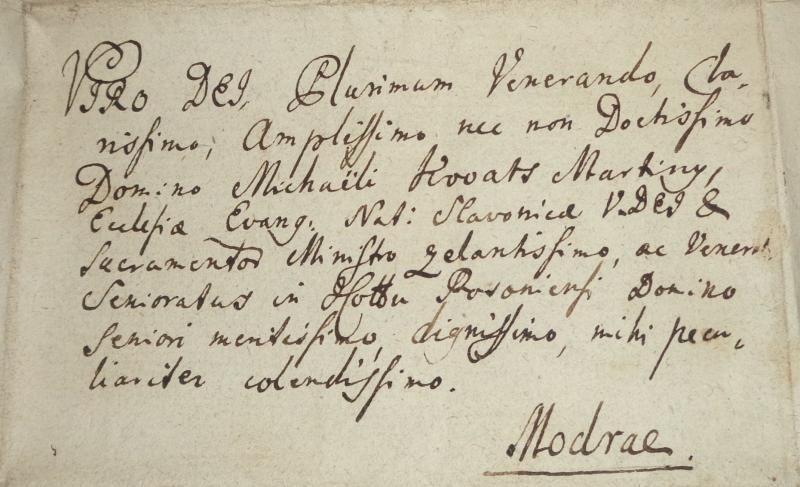 VIRO DEI, Plurimum Venerando, Cla-
rissimo, Amplissimo nec non Doctissimo
Domino Michaëli Kovats Martiny,
Eclesiæ Evang: Nat: Slavonicæ V. DEI &
Sacramentor Ministro zelantissimo, ac Venera
Senioratus in Posoniensi Domino
Seniori meritissimo, dignissimo, mihi pecu-
liariter colendissimo.
Modrae.